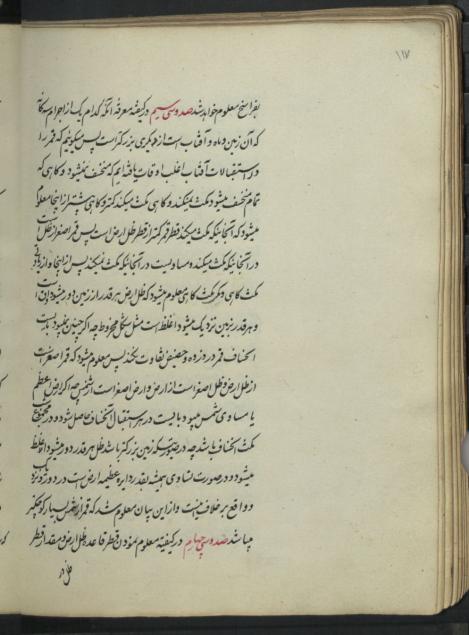 ۱۱۷
بفراسخ معلوم خواهد شد صد و سی سیم در کیفیة معرفة آنکه کدام یک از اجرام سه کانه
که آن زمین و ماه و آفتاب است از دیکری بزرکتر است پس میکوئیم که قمر را
در استقبالات آفتاب اغلب اوقات یافته ایم که منخسف نمیشود و کاهی که
تمام منخسف میشود مکث نمیکند و کاهی مکث میکند کمتر و کاهی بیشتر از اینجا معلوم
میشود که آنجائیکه مکث میکند قطر قمر کمتر از قطر ظل ارض است پس قمر اصغر از ظل است
در آنجائیکه مکث میکند و مساویست در آنجائیکه مکث نمیکند پس از اینجا و از زیادتی
مکث کاهی و کمی مکث کاهی معلوم میشود که ظل ارض هر قدر از زمین دور میشود
و هر قدر بزمین نزدیک میشود اغلظ است مثل شکل مخروط چه اکر چنین نمیبود بایست
انخساف قمر در ذروه و حضیض تفاوت نکند پس معلوم میشود که قمر اصغر است
از ظل ارض و ظل اصغر است از ارض و ارض اصغر است از شمس چه اکر ارض اعظم
یا مساوی شمس میبود بایست در هر استقبال انخساف حاصل شود و در
مکث انخساف باشد چه در صورتیکه زمین بزرکتر باشد ظل هر قدر دور میشود اغلظ
میشود و در صورت تساوی همیشه بقدر دایره عظیمه ارض است در دور و نزدیک
و واقع بر خلاف اینست و از این بیان معلوم شد که قمر از شمس بسیار کوچکتر
میباشد صد و سی چهارم در کیفیة معلوم نمودن قطر قاعده ظل ارض و مقدار قطر